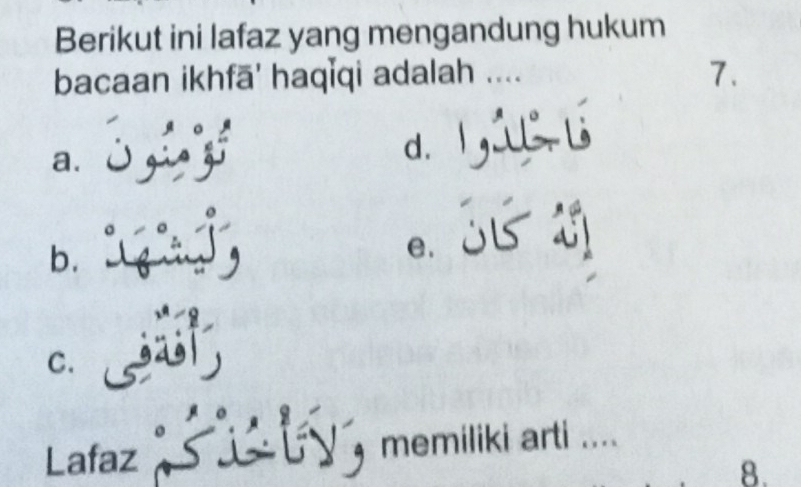 Berikut ini lafaz yang mengandung hukum
bacaan ikhfā' haqīqi adalah ....
7.
a. تُؤْمِنُونَ
d. فَاجْلِدُوا
b. وَلْيَشْهَدْ
e. إِنَّهُ كَانَ
c. رَأْفَةٌفِى
Lafaz وَلَاتَأْخُذْكُمْ memiliki arti ....
8.